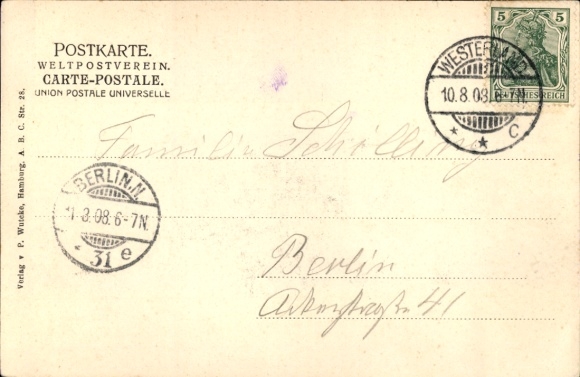 POSTKARTE.
WELTPOSTVEREIN.
CARTE-POSTALE.
UNION POSTALE UNIVERSELLE
5 5
DEUTSCHES REICH
WESTERLAND
10.8.08. N.
* * C
Familie Schölling
BERLIN.N
1.8.08.6-7N.
* 31 e
Berlin
Ackerstraße 41
Verlag v P. Wutcke, Hamburg, A. B. C. Str. 28.